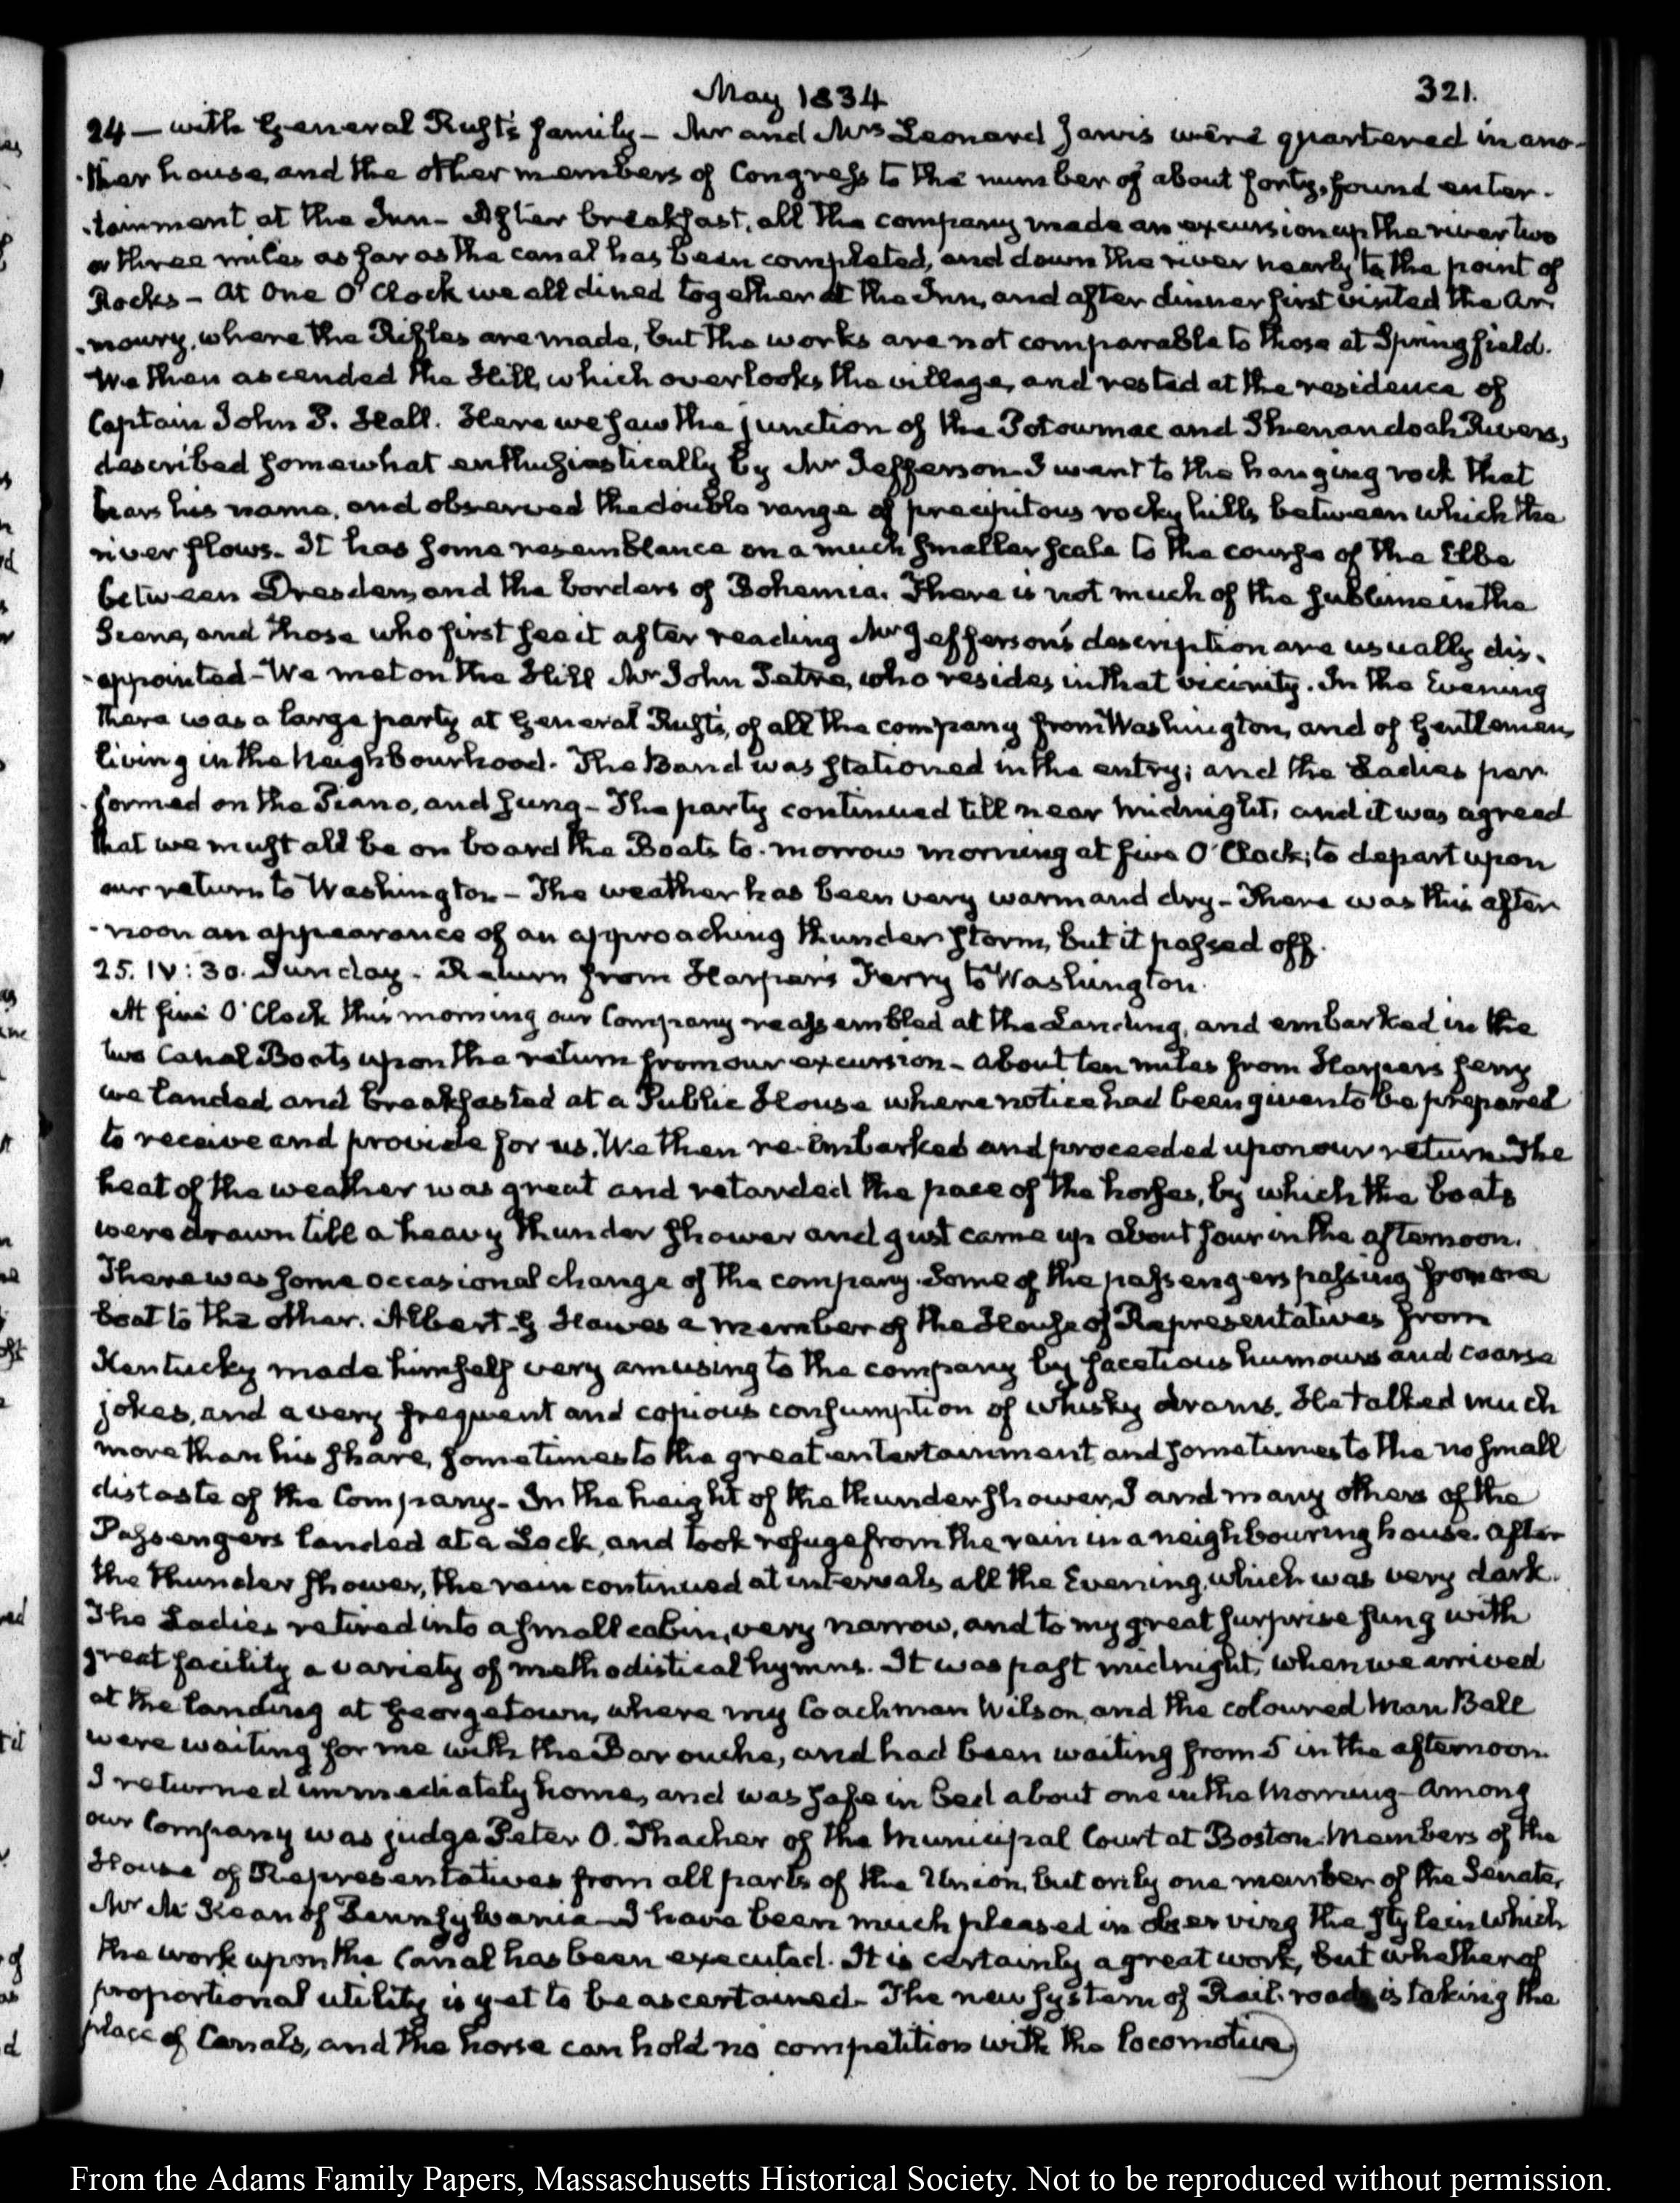 May 1834
321.
24 — with General Rust's family — Mr and Mrs Leonard Jarvis were quartered in ano-
-ther house, and the other members of Congress to the number of about forty, found enter-
-tainment at the Inn — After breakfast, all the company made an excursion up the river two
or three miles as far as the canal has been completed, and down the river nearly to the point of
Rocks — At One O'Clock we all dined together at the Inn, and after dinner first visited the Ar
-moury, where the Rifles are made, but the works are not comparable to those at Springfield.
We then ascended the Hill, which overlooks the village, and rested at the residence of
Captain John P. Hall. Here we saw the junction of the Potowmac and Shenandoah Rivers,
described somewhat enthusiastically by Mr Jefferson — I went to the hanging rock that
bears his name, and observed the double range of precipitous rocky hills between which the
river flows. It has some resemblance on a much smaller scale to the course of the Elbe
between Dresden, and the borders of Bohemia. There is not much of the sublime in the
Scene, and those who first see it after reading Mr Jefferson's description are usually dis-
-appointed — We met on the Hill Mr John Petre, who resides in that vicinity. In the Evening
there was a large party at General Rust's, of all the company from Washington, and of Gentlemen,
living in the Neighbourhood. The Band was stationed in the entry; and the Ladies per
-formed on the Piano, and sung — The party continued till near midnight, and it was agreed
that we must all be on board the Boats to-morrow morning at five O'Clock; to depart upon
our return to Washington — The weather has been very warm and dry — There was this after
-noon an appearance of an approaching thunder storm, but it passed off.
25. IV: 30. Sunday. Return from Harper's Ferry to Washington.
At five O'Clock this morning our Company reassembled at the Landing, and embarked in the
two Canal Boats upon the return from our excursion — about ten miles from Harpers ferry
we landed and breakfasted at a Public House where notice had been given to be prepared
to receive and provide for us. We then re-embarked and proceeded upon our return. The
heat of the weather was great and retarded the pace of the horses, by which the boats
were drawn till a heavy thunder shower and gust came up about four in the afternoon.
There was some occasional change of the company. Some of the passengers passing from one
boat to the other. Albert G Hawes a member of the House of Representatives from
Kentucky made himself very amusing to the company by facetious humours and coarse
jokes, and a very frequent and copious consumption of whisky drams. He talked much
more than his share, sometimes to the great entertainment and sometimes to the no small
distaste of the Company — In the height of the thunder shower, I and many others of the
Passengers landed at a Lock, and took refuge from the rain in a neighbouring house. After
the thunder shower, the rain continued at intervals all the Evening, which was very dark.
The Ladies retired into a small cabin, very narrow, and to my great surprise sung with
great facility a variety of methodistical hymns. It was past midnight, when we arrived
at the landing at Georgetown, where my Coachman Wilson, and the coloured Man Ball
were waiting for me with the Barouche, and had been waiting from 5 in the afternoon.
I returned immediately home, and was safe in bed about one in the Morning — Among
our Company was judge Peter O. Thacher of the Municipal Court at Boston. Members of the
House of Representatives from all parts of the Union, but only one member of the Senate,
Mr Mc Kean of Pennsylvania — I have been much pleased in observing the style in which
the work upon the Canal has been executed. It is certainly a great work, but whether of
proportional utility is yet to be ascertained — The new system of Rail-roads is taking the
place of Canals, and the horse can hold no competition with the locomotive
From the Adams Family Papers, Massachusetts Historical Society. Not to be reproduced without permission.